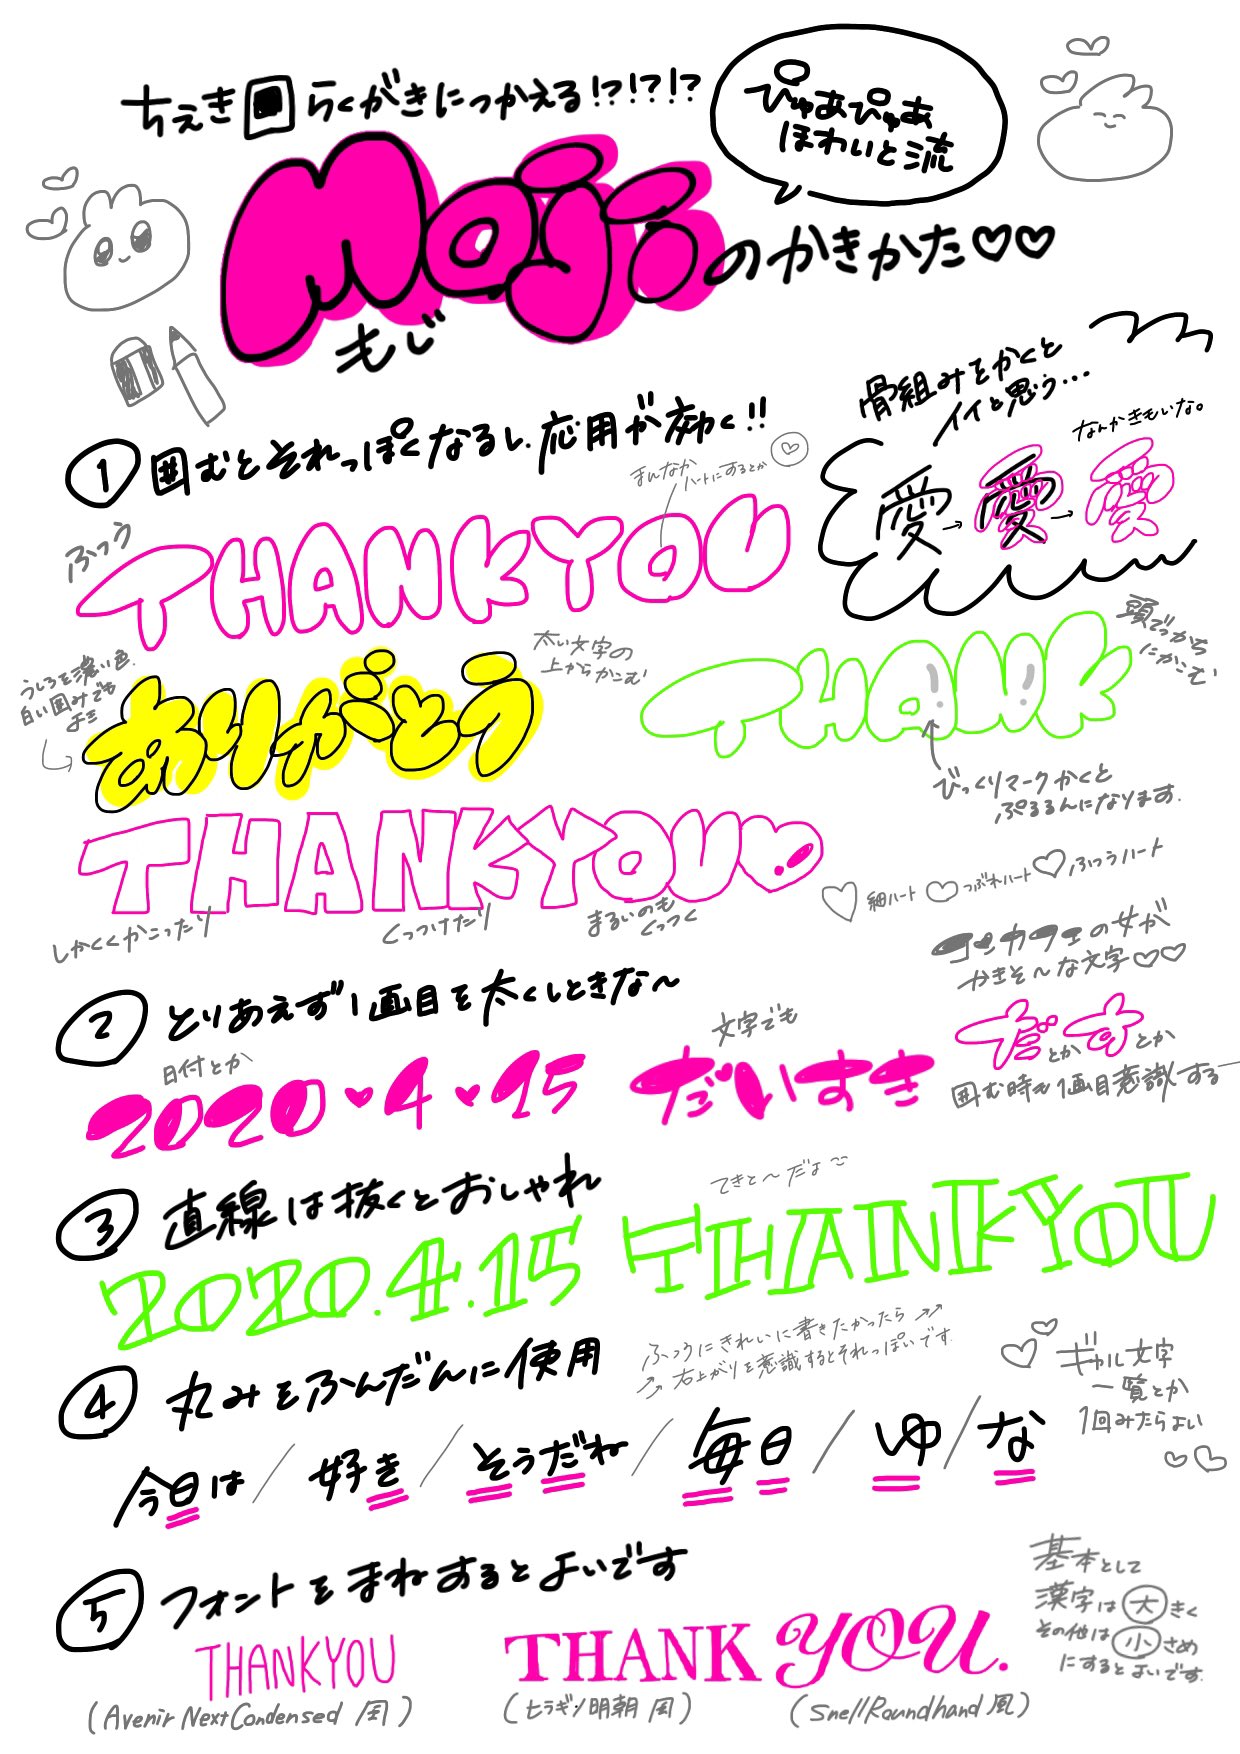 ちぇき回らくがきにつかえる!?!?!?
ぴゅあぴゅあ
ほわいと流
Moji のかきかた♡♡
もじ
① 囲むとそれっぽくなるし、応用が効く!!
骨組みをかくと
イイと思う…
なんかきもいな。
愛→愛→愛
まんなか
ハートにするとか
ふつう
THANKYOU
うしろを濃い色。
白い囲みでも
よき
ありがとう
太い文字の
上からかこむ
THANK
頭でっかち
にかこむ
びっくりマークかくと
ぷるるんになります。
THANKYOU
しかくくかこったり
くっつけたり
まるいのも
くっつく
細ハート つぶれハート ふつうハート
② とりあえず1画目を太くしときな〜
日付とか
2020♥4♥15
文字でも
だいすき
コンカフェの女が
かきそ〜な文字♡♡
だとかすとか
囲む時も1画目意識する
③ 直線は抜くとおしゃれ
2020.4.15
てきと〜だよ
THANKYOU
④ 丸みをふんだんに使用
ふつうにきれいに書きたかったら
右上がりを意識するとそれっぽいです。
ギャル文字
一覧とか
1回みたらよい
今日は/好き/そうだね/毎日/ゆ/な
⑤ フォントをまねするとよいです
THANKYOU
(Avenir Next Condensed 風)
THANK YOU.
(ヒラギノ明朝 風)
(Snell Roundhand 風)
基本として
漢字は大きく
その他は小さめ
にするとよいです。